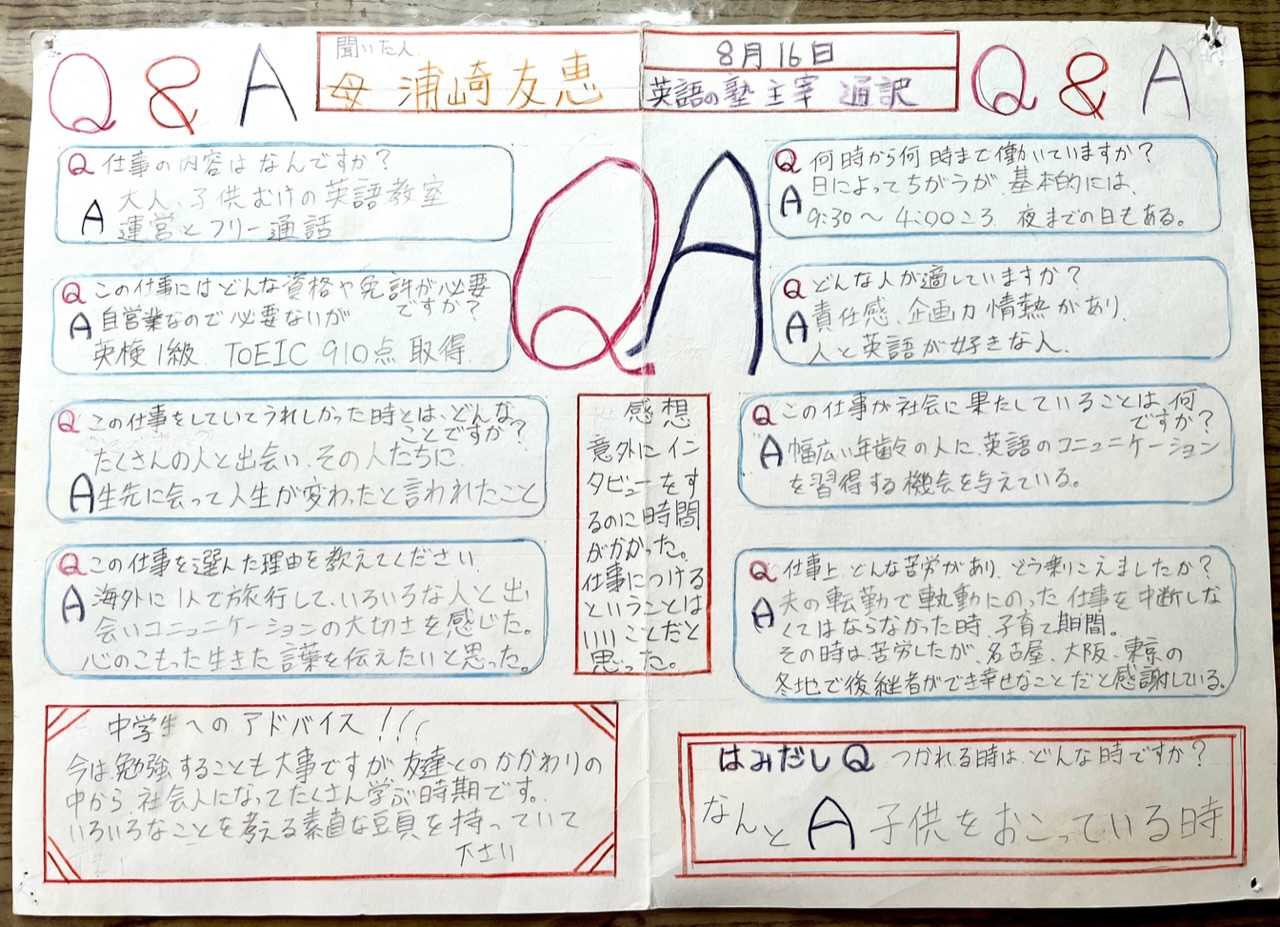 Q & A
聞いた人
母 浦崎友恵
8月16日
英語の塾 主宰 通訳
Q & A
Q 仕事の内容はなんですか?
A 大人、子供むけの英語教室
運営とフリー通話
Q この仕事にはどんな資格や免許が必要
ですか?
A 自営業なので必要ないが
英検1級、TOEIC 910点 取得
Q この仕事をしていてうれしかった時とは、どんな
ことですか?
たくさんの人と出会い、その人たちに
A 生先に会って人生が変わったと言われたこと
Q この仕事を選んだ理由を教えてください
A 海外に1人で旅行して、いろいろな人と出
会いコニュニケーションの大切さを感じた。
心のこもった生きた言葉を伝えたいと思った。
中学生へのアドバイス!!!
今は勉強することも大事ですが友達とのかかわりの
中から、社会人になってたくさん学ぶ時期です。
いろいろなことを考える素直な頭を持っていて
下さい
Q A
感想
意外にイン
タビューをす
るのに時間
がかかった。
仕事につける
ということは
いいことだと
思った。
Q 何時から何時まで働いていますか?
A 日によってちがうが、基本的には、
9:30〜4:00ころ 夜までの日もある。
Q どんな人が適していますか?
A 責任感、企画力 情熱があり、
人と英語が好きな人.
Q この仕事が社会に果たしていることは、何
ですか?
A 幅広い年齢の人に、英語のコニュニケーション
を習得する機会を与えている。
Q 仕事上、どんな苦労があり、どう乗りこえましたか?
A 夫の転勤で軌動にのった仕事を中断しな
くてはならなかった時、子育て期間。
その時は苦労したが、名古屋、大阪、東京の
各地で後継者ができ幸せなことだと感謝している。
はみだしQ つかれる時は、どんな時ですか?
なんと A 子供をおこっている時